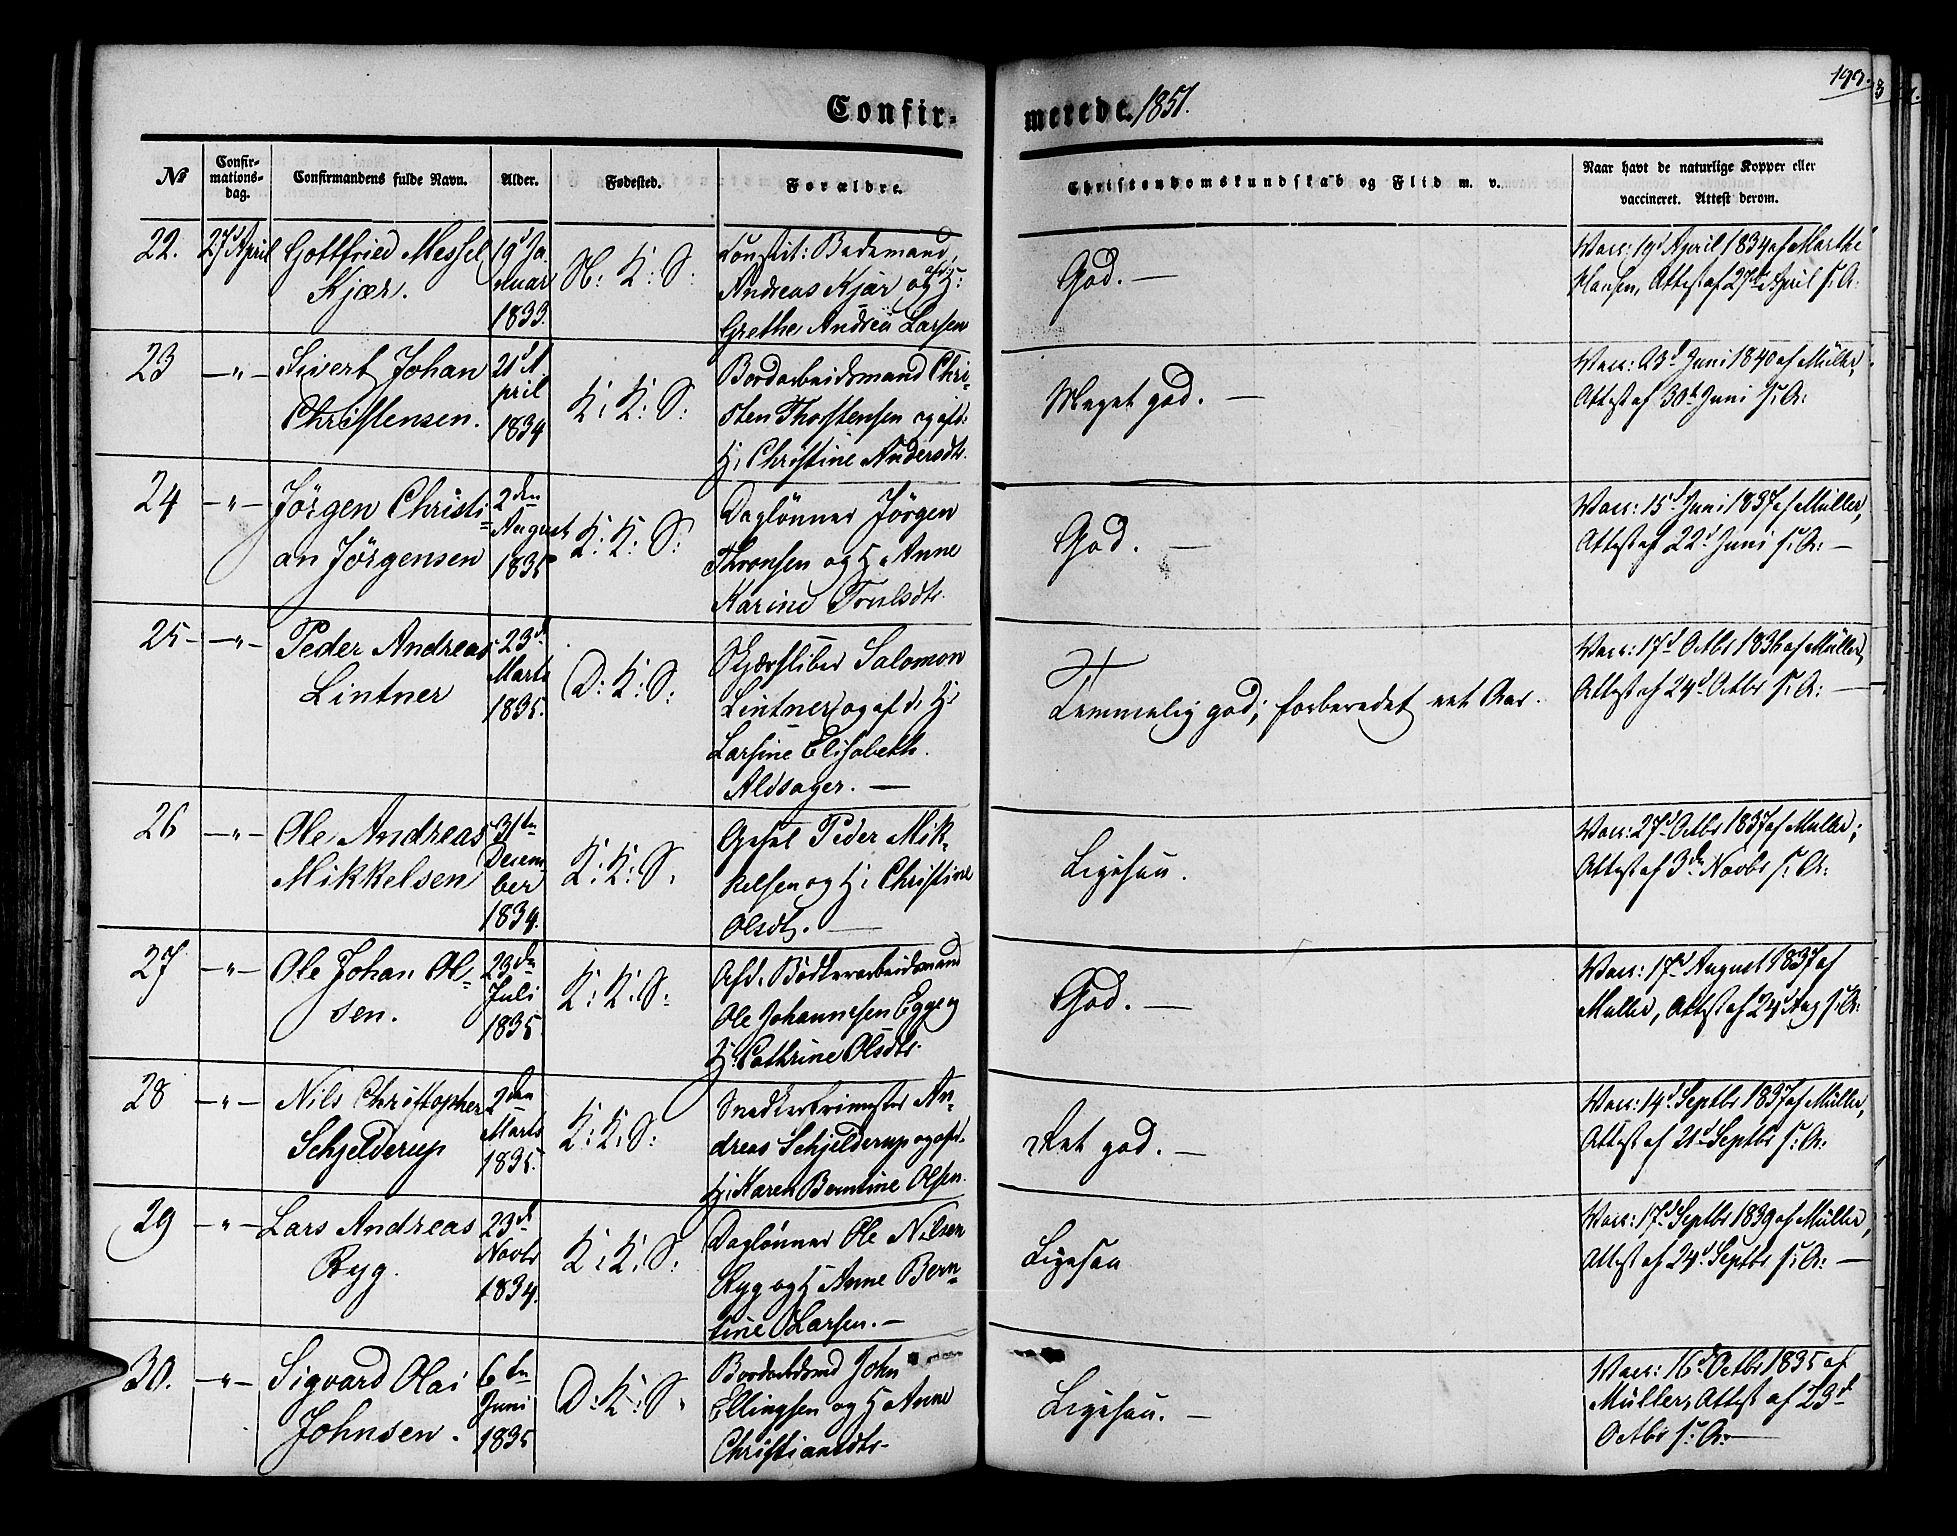 Confir-
merede. 1851.
193.
№
Confir-
mations-
dag.
Confirmandens fulde Navn.
Alder.
Fødested.
Forældre.
Christendomskundskab og Flid m. v.
Naar havt de naturlige Kopper eller
vaccineret. Attest derom.
22.
27d April
Gottfried Messel
Kjær.
19d Ja-
nuar
1833.
N: K: S:
Constit: Bademand,
Andreas Kjær og H:
Grethe Andrea Larsen
God. —
Vacc: 19d April 1834 af Marthe
Hansen, Attest af 27d April s: A:
23
—"—
Sivert Johan
Christensen.
21d A
pril
1834
K: K: S:
Bordarbeidsmand Chri-
sten Thorstensen og afd:
H: Christine Andersdtr.
Meget god. —
Vacc: 23d Juni 1840 af Müller,
Attest af 30t Juni s: A:
24
—"—
Jörgen Christi-
an Jörgensen
2den
August
1835
K: K: S:
Daglönner Jörgen
Thronsen og H. Anne
Karine Trulsdtr.
God. —
Vacc: 15d Juni 1837 af Müller,
Attest af 22d Juni s: A: —
25-
—"—
Peder Andreas
Lintner
23d
Marts
1835.
D: K: S:
Skjærsliber Salomon
Lintner og afd. H:
Larsine Elisabeth
Aldsager. —
Temmelig god; forberedet eet Aar.
Vacc: 17d Octbr 1836 af Müller,
Attest af 24d Octbr s: A: —
26
—"—
Ole Andreas
Mikkelsen
31te
Decem
ber
1834.
K: K: S.
Gesel Peder Mik-
kelsen og H: Christine
Olsdtr. —
Ligesaa.
Vacc: 27d Octbr 1837 af Müller;
Attest af 3de Novbr s: A:
27
—"—
Ole Johan Ol-
sen.
23de
Juli
1835.
K: K: S:
Afd. Bödkerarbeidsmand
Ole Johannesen Egge og
H: Cathrine Olsdtr.
God. —
Vacc: 17d August 1837 af
Müller, Attest af 24d Aug s: A:
28
—"—
Nils Christopher
Schjelderup
2den
Marts
1835.
K: K: S:
Snedker An-
dreas Schjelderup og afd.
H: Karen Berntine Olsen.
Ret god. —
Vacc: 14d Septbr 1837 af Müller,
Attest af 21d Septbr s: A:
29
—"—
Lars Andreas
Ryg.
23d
Novbr
1834.
K: K: S:
Daglönner Ole Nilsen
Ryg og H Anne Bern-
tine Larsen. —
Ligesaa
Vacc: 17d Septbr 1839 af Müller,
Attest af 24d Septbr s: A: —
30.
—"—
Sigvard Olai
Johnsen.
6te
Juni
1835
D: K: S.
Bordarbdsmd John
Ellingsen og H Anne
Christiansdtr.
Ligesaa. —
Vacc: 16d Octbr 1835 af
Müller, Attest af 23d
Octbr s: A: —